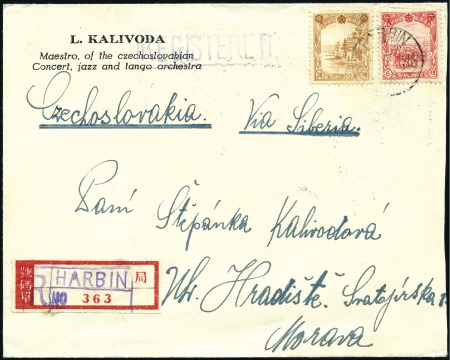 L. KALIVODA
Maestro, of the czechoslovakian
Concert, jazz and tango orchestra
REGISTERED.
HARBIN
Czechoslovakia. Via Siberia.
Paní Štěpánka Kalivodová
Uh. Hradiště. Svatojirská
Morava
R HARBIN 局
NO 363